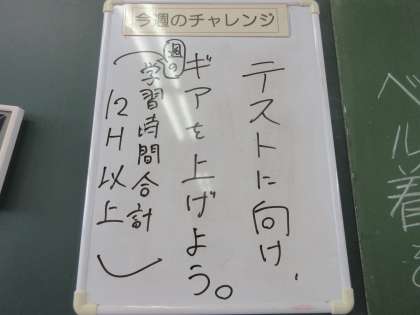 今週のチャレンジ
テストに向け、
ギアを上げよう。
（週の学習時間合計
12H以上）
ベル着